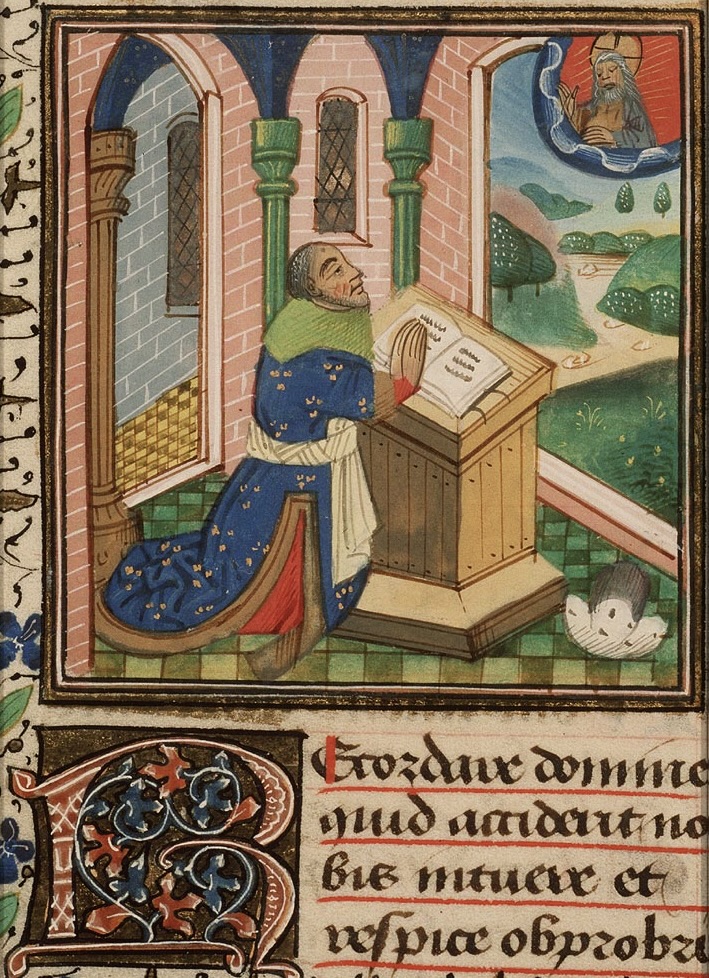 REcordare domine
quid acciderit no
bis intuere et
respice obprobri